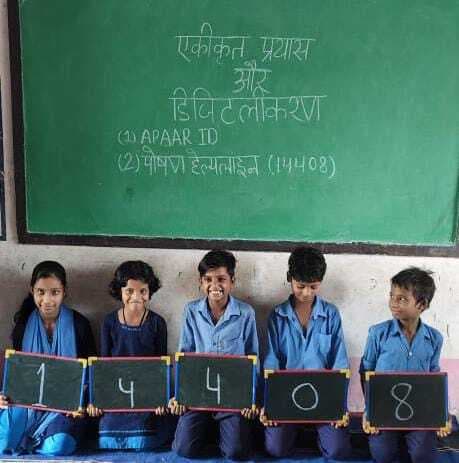 एकीकृत प्रयास
और
डिजिटलीकरण
(1) APAAR ID
(2) पोषण हेल्पलाइन (14408)
1 4 4 0 8